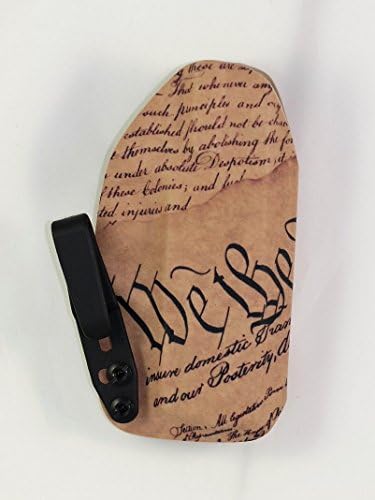 these are
That whenever any
such principles and org
established should not be chan
t themselves by abolishing the for
under absolute Despotism, it
f these Colonies; and such
ted injuries and
We the
insure domestic Tran
and our Posterity, d
Section. All legislative Powe
The